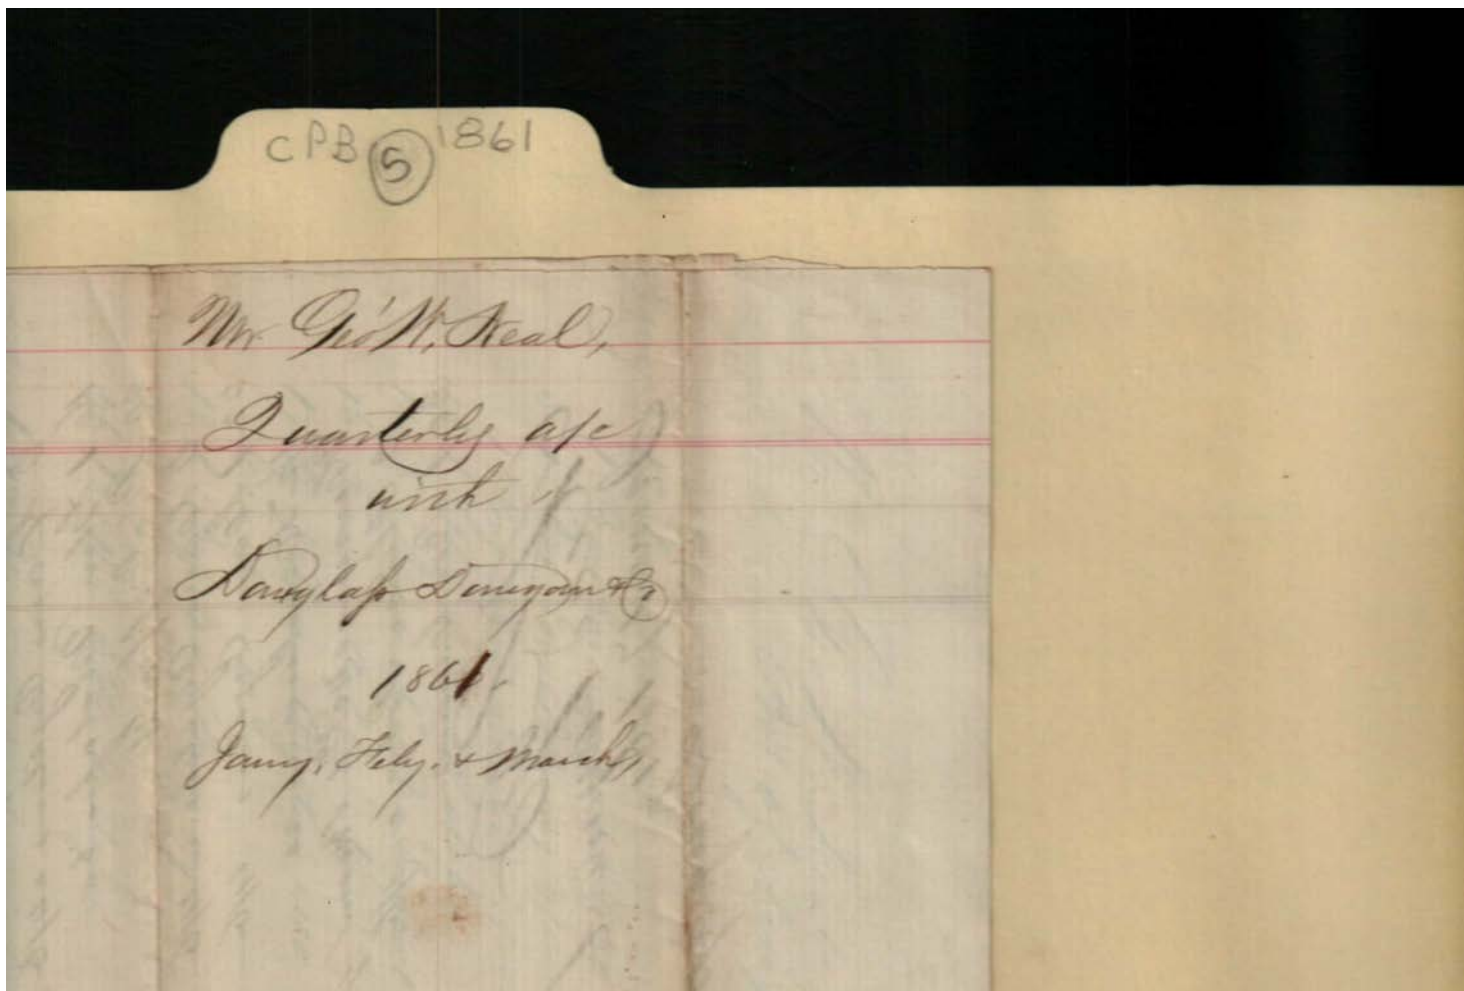 CPB 5 1861
Mr Geo W. Neal,
Quarterly a/c
with
Douglass Donegan & Co
1861.
Jany, Feby. & March,